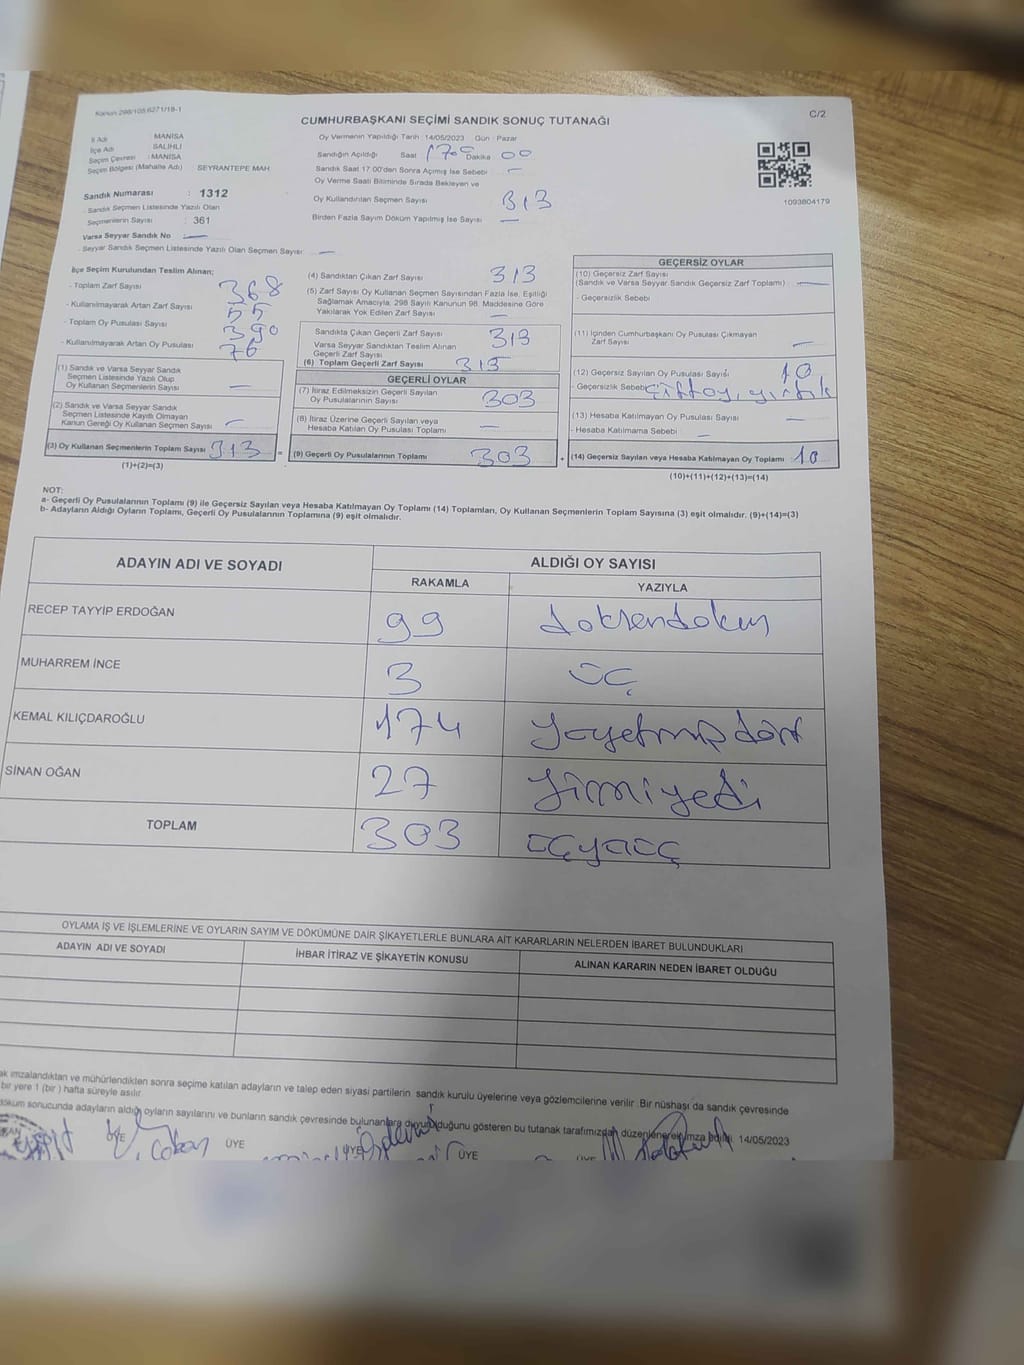 Kanun 298/105,6271/18-1
C/2
CUMHURBAŞKANI SEÇİMİ SANDIK SONUÇ TUTANAĞI
İl Adı MANİSA
İlçe Adı SALİHLİ
Seçim Çevresi : MANİSA
Seçim Bölgesi (Mahalle Adı) SEYRANTEPE MAH
Sandık Numarası : 1312
Sandık Seçmen Listesinde Yazılı Olan
Seçmenlerin Sayısı : 361
Varsa Seyyar Sandık No —
Seyyar Sandık Seçmen Listesinde Yazılı Olan Seçmen Sayısı: —
Oy Vermenin Yapıldığı Tarih : 14/05/2023 Gün : Pazar
Sandığın Açıldığı Saat 17:00 Dakika 00
Sandık Saat 17:00'den Sonra Açılmış İse Sebebi —
Oy Verme Saati Bitiminde Sırada Bekleyen ve
Oy Kullandırılan Seçmen Sayısı 313
Birden Fazla Sayım Döküm Yapılmış İse Sayısı —
1093804179
İlçe Seçim Kurulundan Teslim Alınan;
- Toplam Zarf Sayısı 368
- Kullanılmayarak Artan Zarf Sayısı 55
- Toplam Oy Pusulası Sayısı 390
- Kullanılmayarak Artan Oy Pusulası 76
(1) Sandık ve Varsa Seyyar Sandık
Seçmen Listesinde Yazılı Olup
Oy Kullanan Seçmenlerin Sayısı —
(2) Sandık ve Varsa Seyyar Sandık
Seçmen Listesinde Kayıtlı Olmayan
Kanun Gereği Oy Kullanan Seçmen Sayısı —
(3) Oy Kullanan Seçmenlerin Toplam Sayısı 313
(1)+(2)=(3)
(4) Sandıktan Çıkan Zarf Sayısı 313
(5) Zarf Sayısı Oy Kullanan Seçmen Sayısından Fazla İse, Eşitliği
Sağlamak Amacıyla; 298 Sayılı Kanunun 98. Maddesine Göre
Yakılarak Yok Edilen Zarf Sayısı —
Sandıkta Çıkan Geçerli Zarf Sayısı 313
Varsa Seyyar Sandıktan Teslim Alınan
Geçerli Zarf Sayısı
(6) Toplam Geçerli Zarf Sayısı 313
GEÇERLİ OYLAR
(7) İtiraz Edilmeksizin Geçerli Sayılan
Oy Pusulalarının Sayısı 303
(8) İtiraz Üzerine Geçerli Sayılan veya
Hesaba Katılan Oy Pusulası Toplamı —
(9) Geçerli Oy Pusulalarının Toplamı 303
GEÇERSİZ OYLAR
(10) Geçersiz Zarf Sayısı
(Sandık ve Varsa Seyyar Sandık Geçersiz Zarf Toplamı) —
- Geçersizlik Sebebi
(11) İçinden Cumhurbaşkanı Oy Pusulası Çıkmayan
Zarf Sayısı —
(12) Geçersiz Sayılan Oy Pusulası Sayısı 10
- Geçersizlik Sebebi çift oy, yırtık
(13) Hesaba Katılmayan Oy Pusulası Sayısı —
- Hesaba Katılmama Sebebi —
(14) Geçersiz Sayılan veya Hesaba Katılmayan Oy Toplamı 10
(10)+(11)+(12)+(13)=(14)
NOT:
a- Geçerli Oy Pusulalarının Toplamı (9) ile Geçersiz Sayılan veya Hesaba Katılmayan Oy Toplamı (14) Toplamları, Oy Kullanan Seçmenlerin Toplam Sayısına (3) eşit olmalıdır. (9)+(14)=(3)
b- Adayların Aldığı Oyların Toplamı, Geçerli Oy Pusulalarının Toplamına (9) eşit olmalıdır.
ADAYIN ADI VE SOYADI ALDIĞI OY SAYISI
RAKAMLA YAZIYLA
RECEP TAYYİP ERDOĞAN 99 doksandokuz
MUHARREM İNCE 3 üç
KEMAL KILIÇDAROĞLU 174 yüzyetmişdört
SİNAN OĞAN 27 yirmiyedi
TOPLAM 303 üçyüzüç
OYLAMA İŞ VE İŞLEMLERİNE VE OYLARIN SAYIM VE DÖKÜMÜNE DAİR ŞİKAYETLERLE BUNLARA AİT KARARLARIN NELERDEN İBARET BULUNDUKLARI
ADAYIN ADI VE SOYADI İHBAR İTİRAZ VE ŞİKAYETİN KONUSU ALINAN KARARIN NEDEN İBARET OLDUĞU
ak imzalandıktan ve mühürlendikten sonra seçime katılan adayların ve talep eden siyasi partilerin sandık kurulu üyelerine veya gözlemcilerine verilir. Bir nüshası da sandık çevresinde
bir yere 1 (bir) hafta süreyle asılır.
döküm sonucunda adayların aldığı oyların sayılarını ve bunların sandık çevresinde bulunanlara duyurulduğunu gösteren bu tutanak tarafımızdan düzenlenerek imza edildi. 14/05/2023
ÜYE Çoban ÜYE ÜYE ÜYE ÜYE